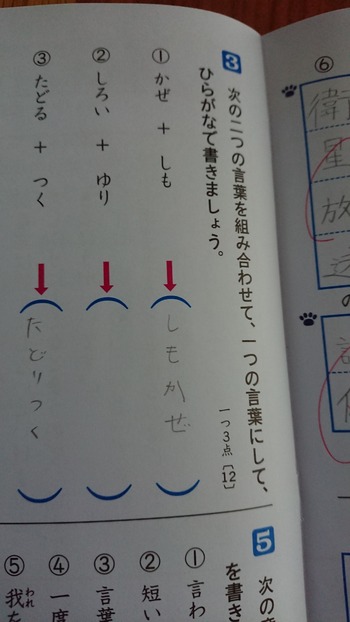 ⑥
衛
星
放
3 次の二つの言葉を組み合わせて、一つの言葉にして、
ひらがなで書きましょう。
一つ3点〔12〕
① かぜ + しも
しもかぜ
② しろい + ゆり
③ たどる + つく
たどりつく
5 次の
を書き
① 言わ
② 短い
③ 言葉
④ 一度
⑤ 我を
われ